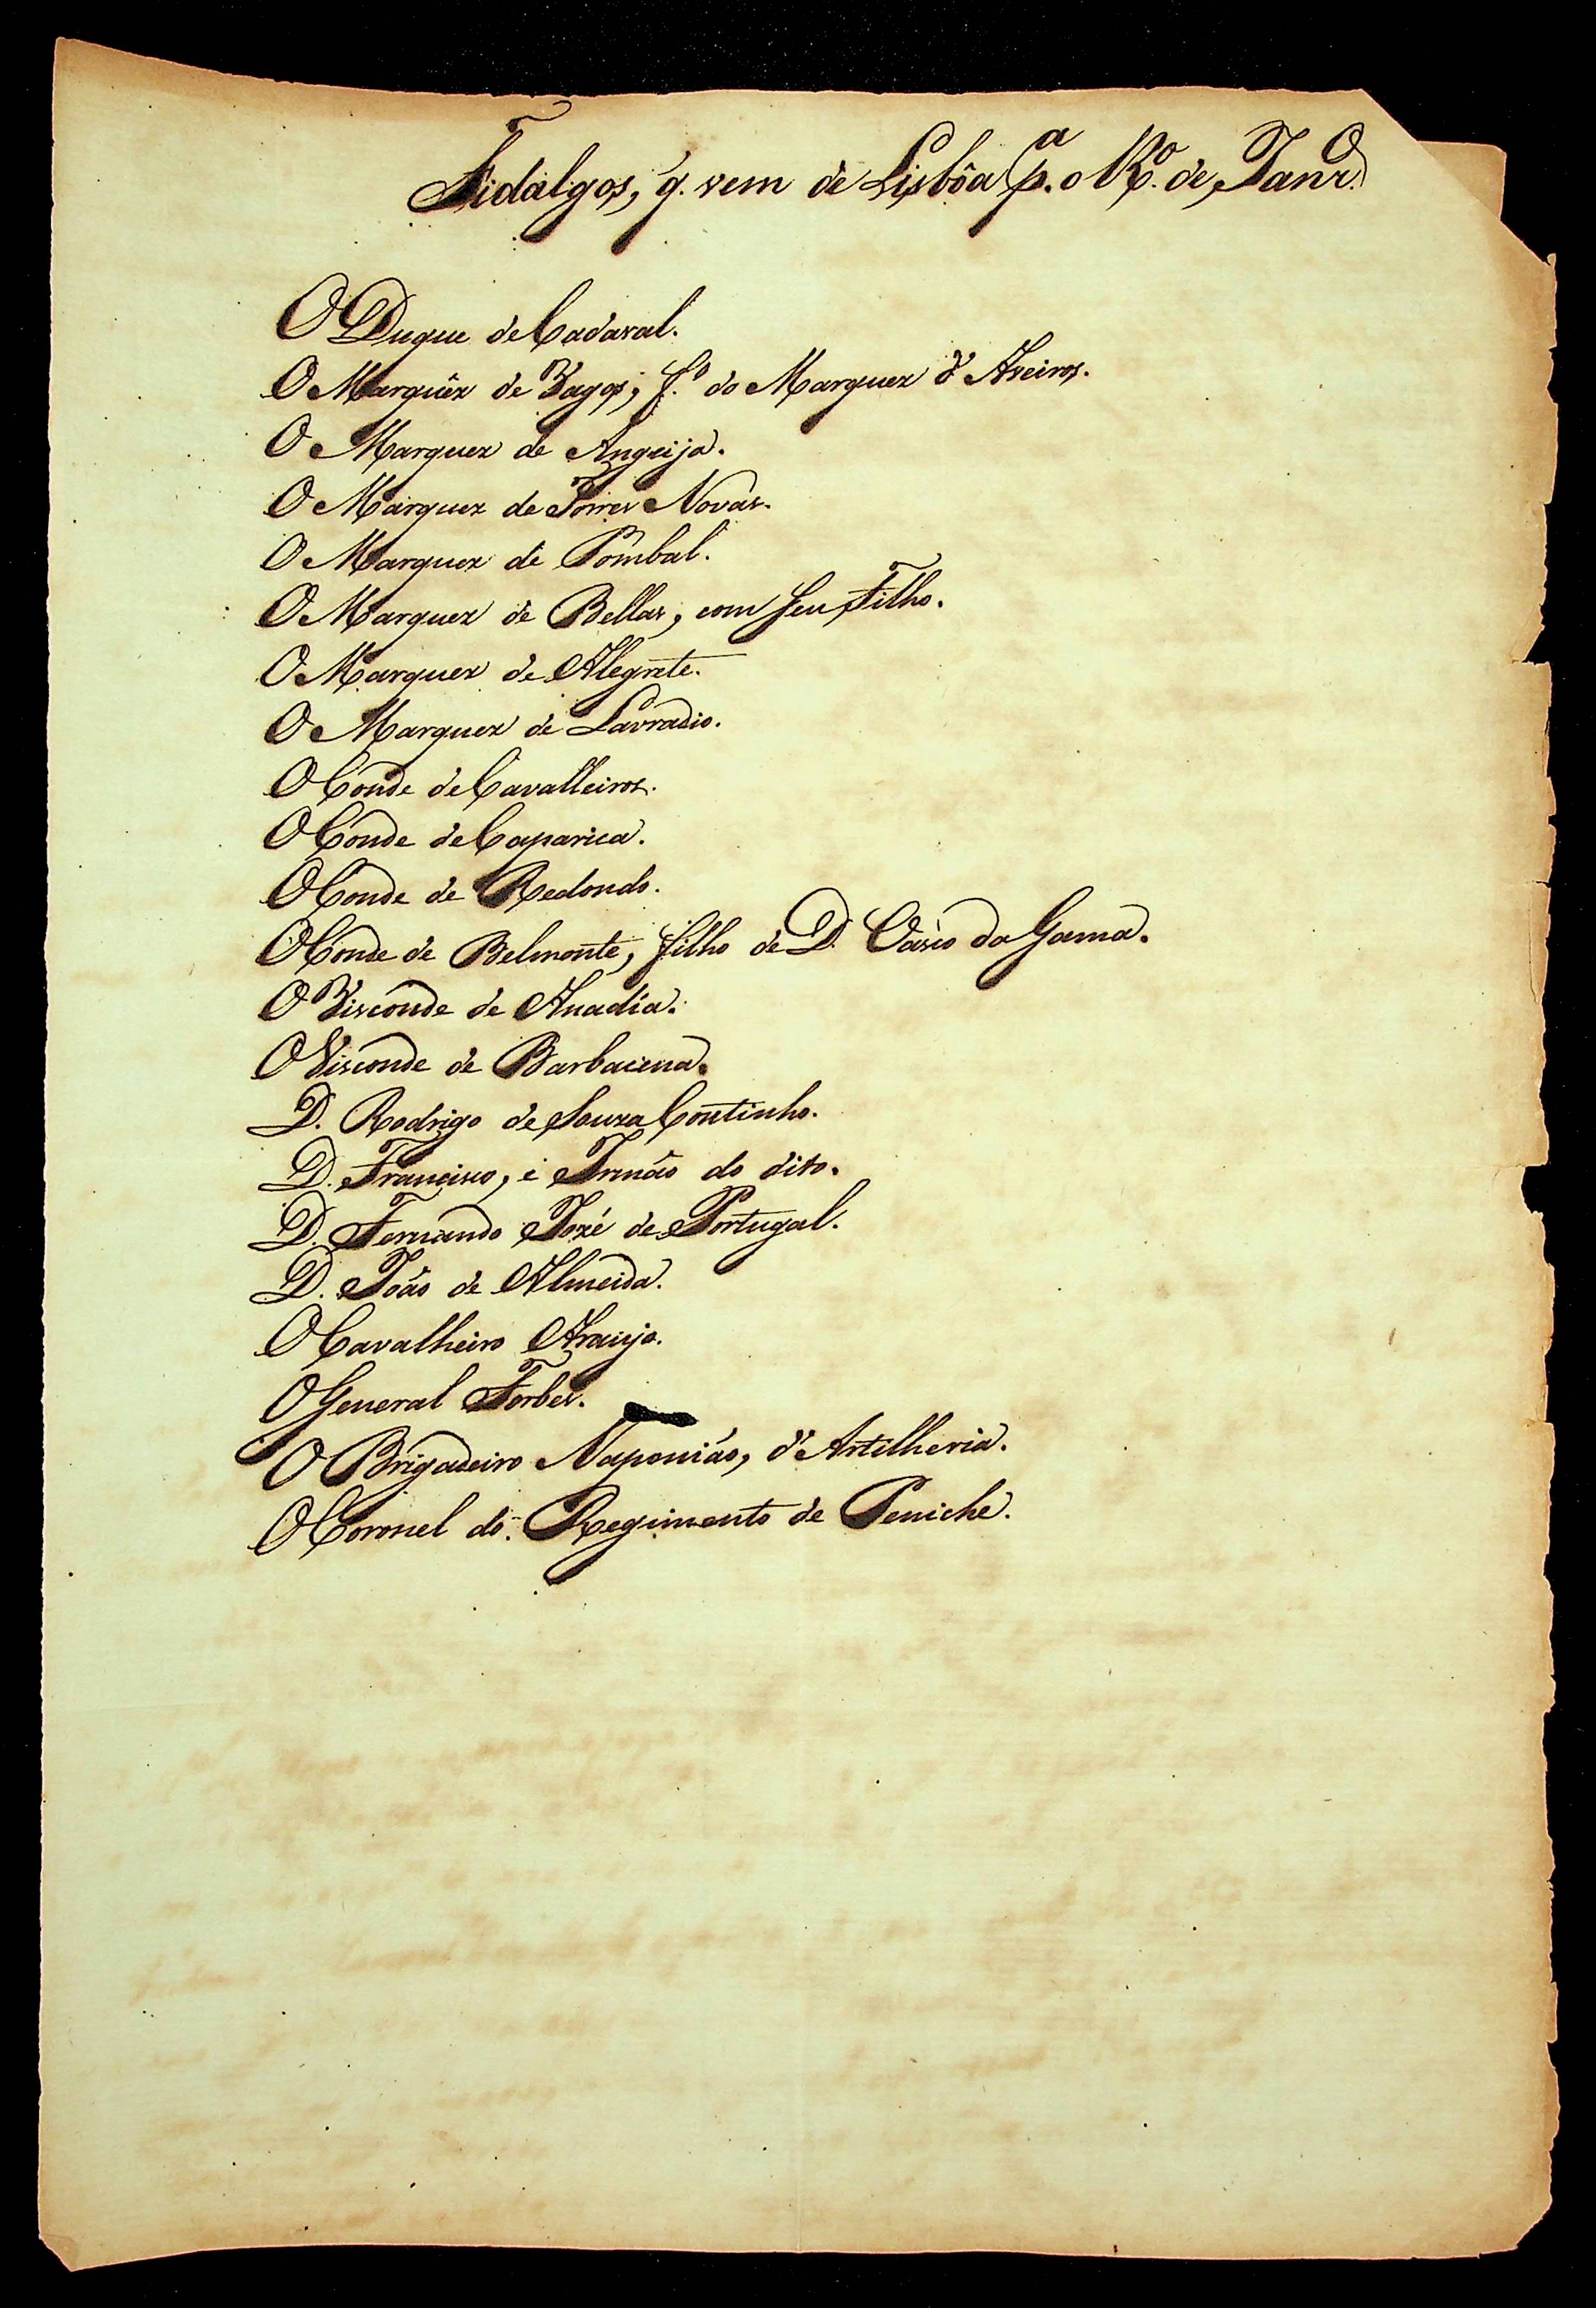 Fidalgos, q. vem de Lisbôa p.ª o R.º de Janr.º
O Duque de Cadaval.
O Marquêz de Vagos, f.º do Marquez d'Aveiros.
O Marquez de Angeija.
O Marquez de Torres Novas.
O Marquez de Pombal.
O Marquez de Bellas, com seu Filho.
O Marquez de Alegrete.
O Marquez de Lavradio.
O Conde de Cavalleiros.
O Conde de Caparica.
O Conde de Redondo.
O Conde de Belmonte, filho de D. Vasco da Gama.
O Visconde de Anadía.
O Visconde de Barbacena.
D. Rodrigo de Souza Coutinho.
D. Francisco, e Irmão do dito.
D. Fernando José de Portugal.
D. João de Almeida.
O Cavalheiro Araujo.
O General Forbes.
O Brigadeiro Naponião, d'Artilheria.
O Coronel do Regimento de Peniche.